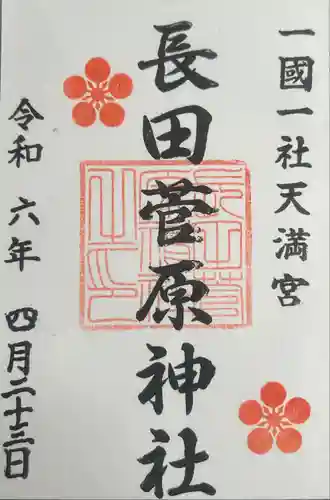 一國一社天満宮
長田菅原神社
令和六年 四月二十三日